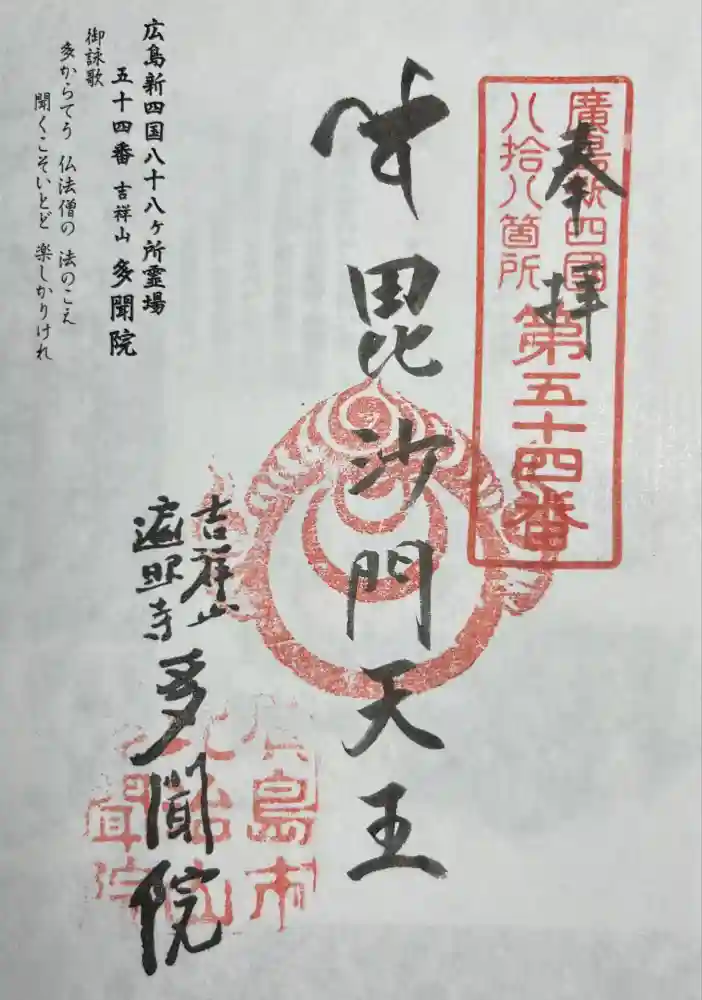 奉拝
廣島新四國
八拾八箇所
第五十四番
毘沙門天王
吉祥山
遍照寺
多聞院
廣島市
比治山
多聞院
広島新四国八十八ヶ所霊場
五十四番 吉祥山 多聞院
御詠歌
多からてう 仏法僧の 法のこえ
聞くこそいとど 楽しかりけれ